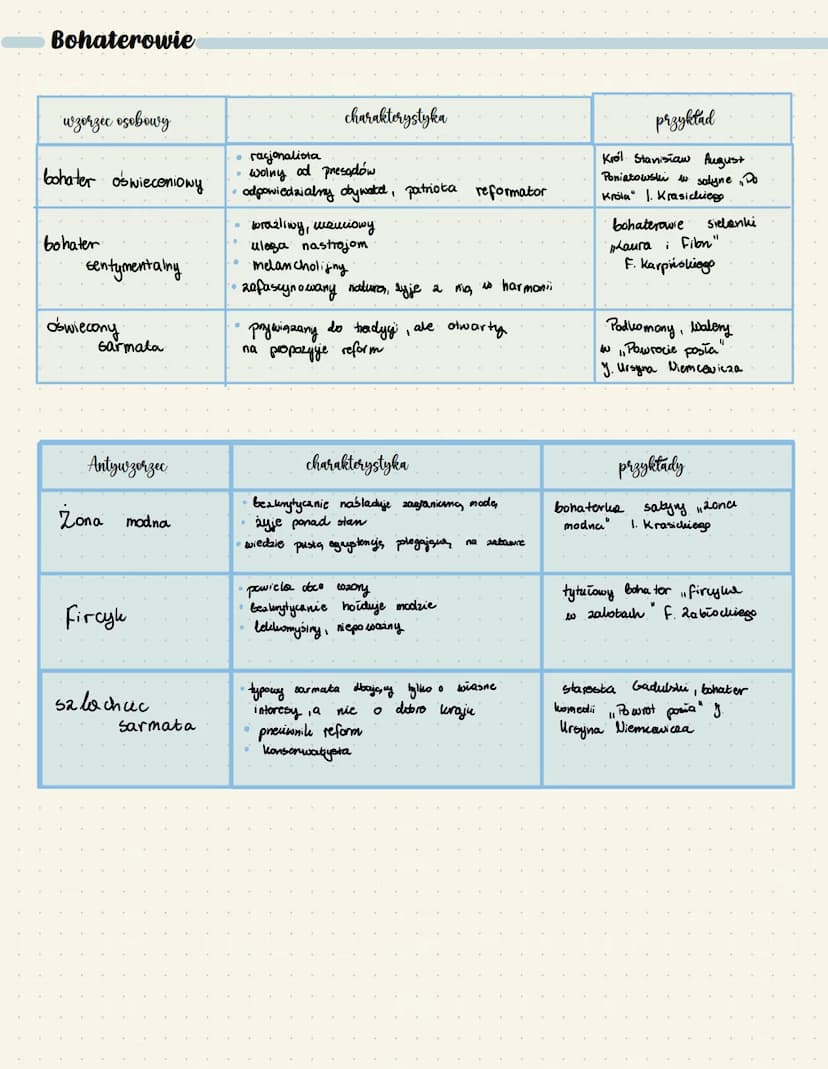 Bohaterowie
wzorzec osobowy
charakterystyka
przykład
bohater oświeceniowy
• racjonalista
• wolny od przesądów
• odpowiedzialny obywatel, patriota reformator
Król Stanisław August
Poniatowski w satyrze „Do
Króla" I. Krasickiego
bohater
sentymentalny
• wrażliwy, uczuciowy
• ulega nastrojom
• melancholijny
• zafascynowany naturą, żyje z nią w harmonii
bohaterowie sielanki
„Laura i Filon"
F. Karpińskiego
oświecony
sarmata
• przywiązany do tradycji, ale otwarty
na propozycje reform
Podkomorzy, Walery
w „Powrocie posła"
J. Ursyna Niemcewicza
Antywzorzec
charakterystyka
przykłady
Żona modna
• bezkrytycznie naśladuje zagraniczną modę
• żyje ponad stan
• wiedzie pustą egzystencję, polegającą na zabawie
bohaterka satyry „żona
modna" I. Krasickiego
Fircyk
• powiela obce wzory
• bezkrytycznie hołduje modzie
• lekkomyślny, niepoważny
tytułowy bohater „Fircyka
w zalotach" F. Zabłockiego
szlachcic
sarmata
• typowy sarmata dbający tylko o własne
interesy, a nie o dobro kraju
• przeciwnik reform
• konserwatysta
starosta Gadulski, bohater
komedii „Powrót posła" J.
Ursyna Niemcewicza